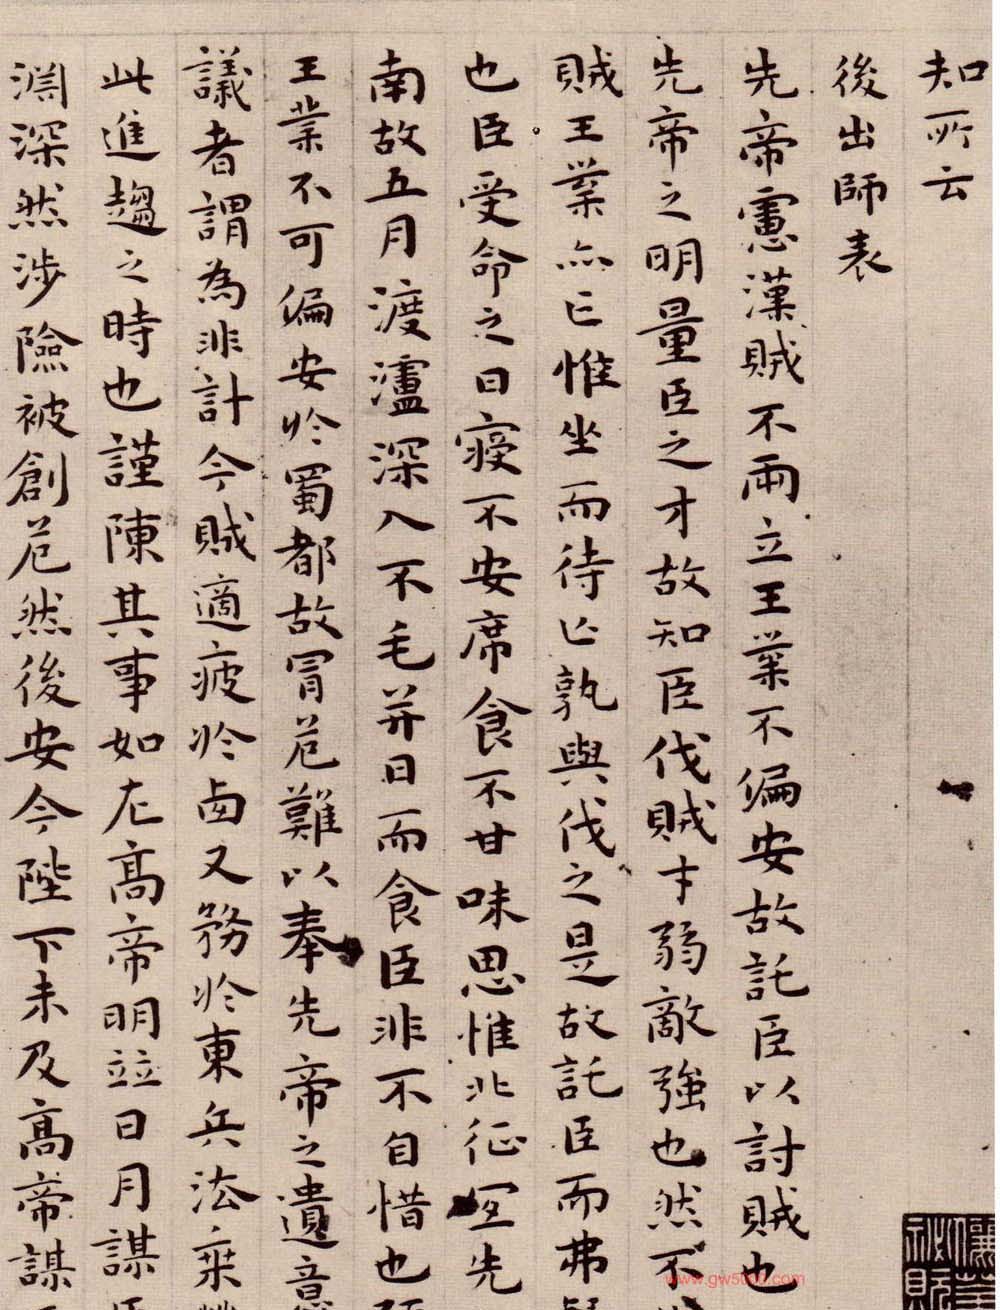 知所云
後出師表
先帝慮漢賊不兩立王業不偏安故託臣以討賊也
先帝之明量臣之才故知臣伐賊才弱敵強也然不
賊王業亦亡惟坐而待亡孰與伐之是故託臣而弗
也臣受命之日寑不安席食不甘味思惟北征宜先
南故五月渡瀘深入不毛并日而食臣非不自惜也
王業不可偏安於蜀都故冒危難以奉先帝之遺意
議者謂為非計今賊適疲於西又務於東兵法乗
此進趨之時也謹陳其事如左高帝明並日月謀
淵深然涉險被創危然後安今陛下未及高帝謀